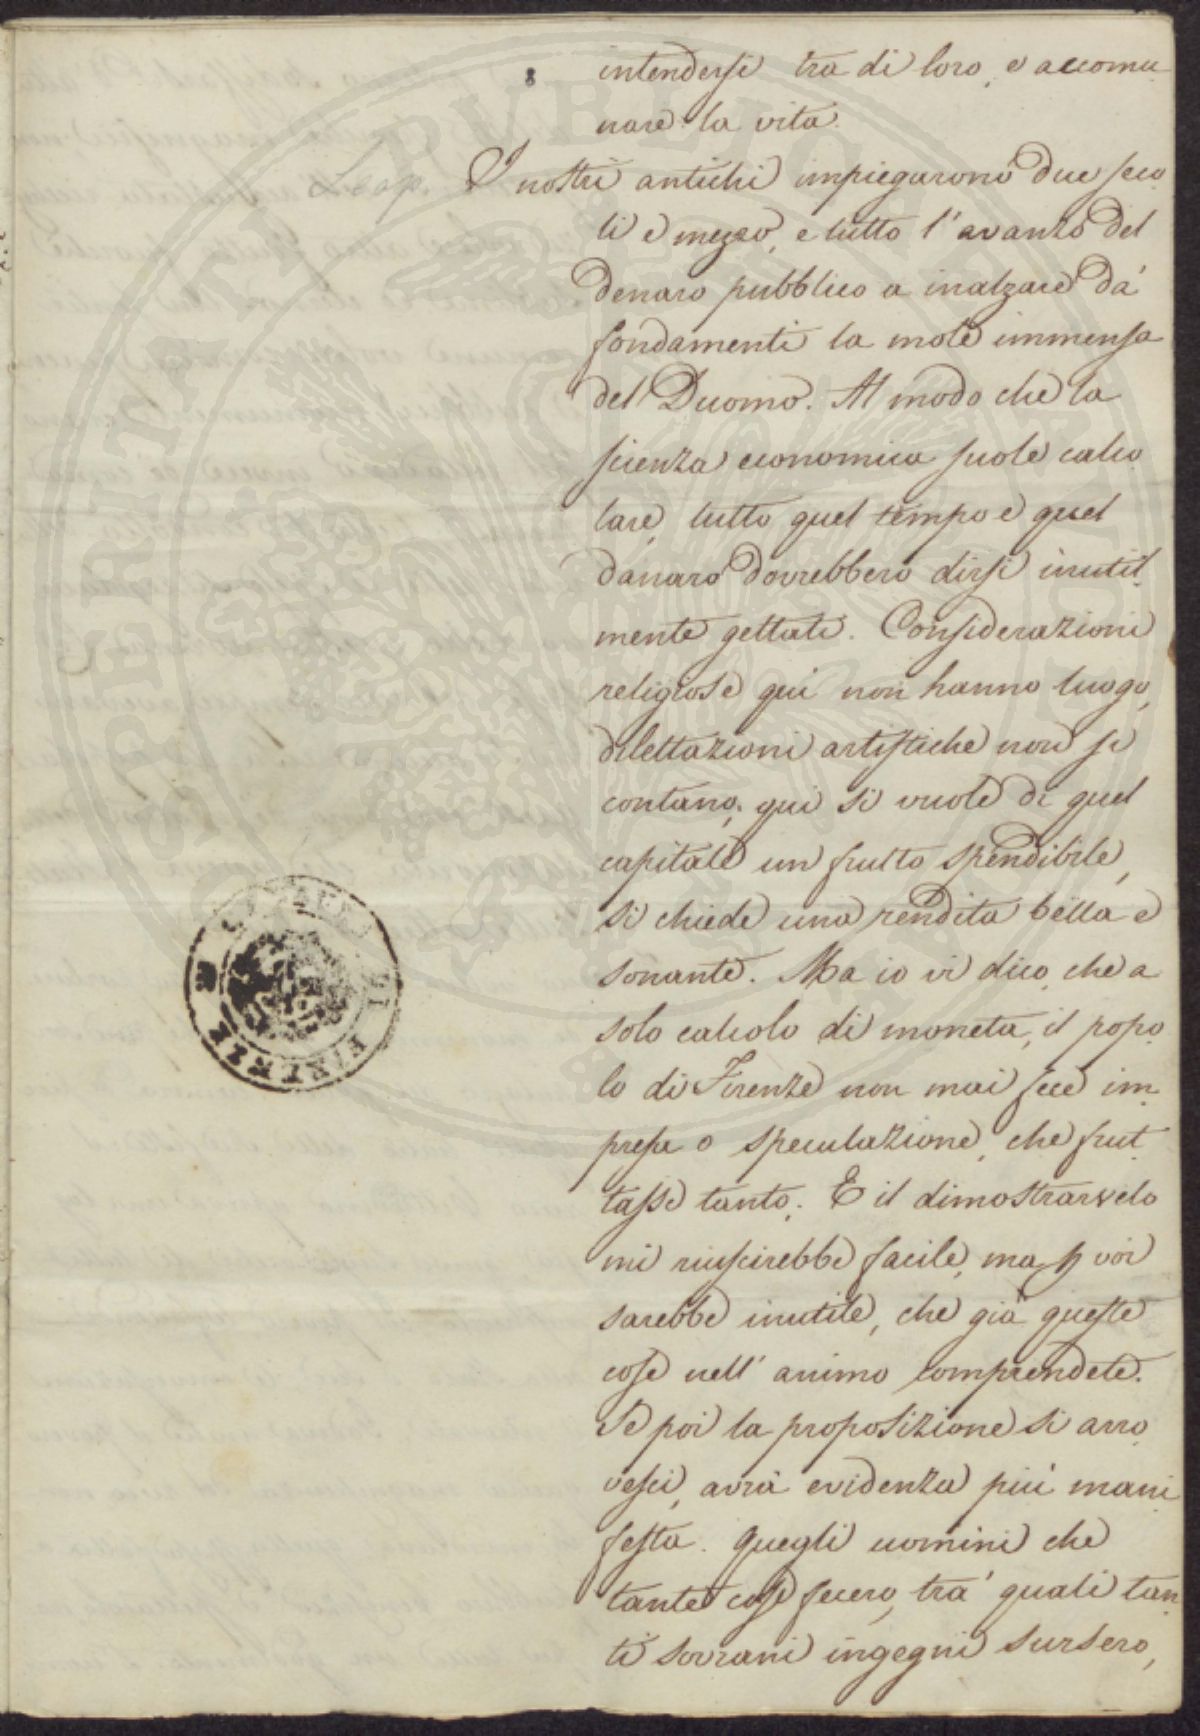 intendersi tra di loro, e accomu
nare la vita.
Leop. I nostri antichi impiegarono due seco
li e mezzo, e tutto l'avanzo del
denaro pubblico a inalzare da'
fondamenti la mole immensa
del Duomo. Al modo che la
scienza economica suole calco
lare, tutto quel tempo e quel
danaro dovrebbero dirsi inutil
mente gettati. Considerazioni
religiose qui non hanno luogo,
dilettazioni artistiche non si
contano; qui si vuole di quel
capitale un frutto spendibile,
si chiede una rendita bella e
sonante. Ma io vi dico, che a
solo calcolo di moneta, il popo
lo di Firenze non mai fece im
presa o speculazione, che frut
tasse tanto. E il dimostrarvelo
mi riuscirebbe facile, ma p voi
sarebbe inutile, che già queste
cose nell'animo comprendete.
Se poi la proposizione si arro
vesci, avrà evidenza più mani
festa. Quegli uomini che
tante cose fecero, tra' quali tan
ti sovrani ingegni sursero,
DI FIRENZE